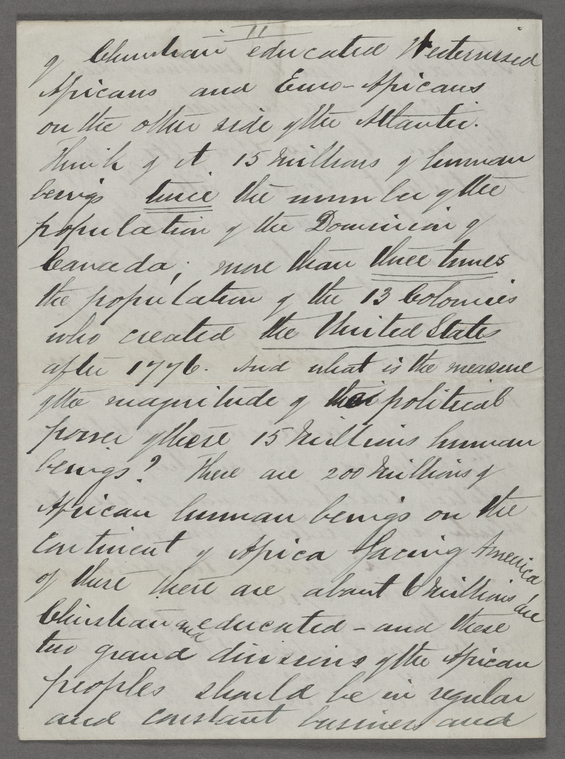 11
of Christian educated Westernised
Africans and Euro-Africans
on the other side of the Atlantic.
Think of it 15 millions of human
beings twice the number of the
population of the Dominion of
Canada; more than three times
the population of the 13 Colonies
who created the United States
after 1776. And what is the measure
of the magnitude of political
power of these 15 millions human
beings? There are 200 millions of
African human beings on the
continent of Africa facing America
of these there are about 6 millions
Christian and educated - and these
two grand divisions of the African
peoples should be in regular
and constant business and